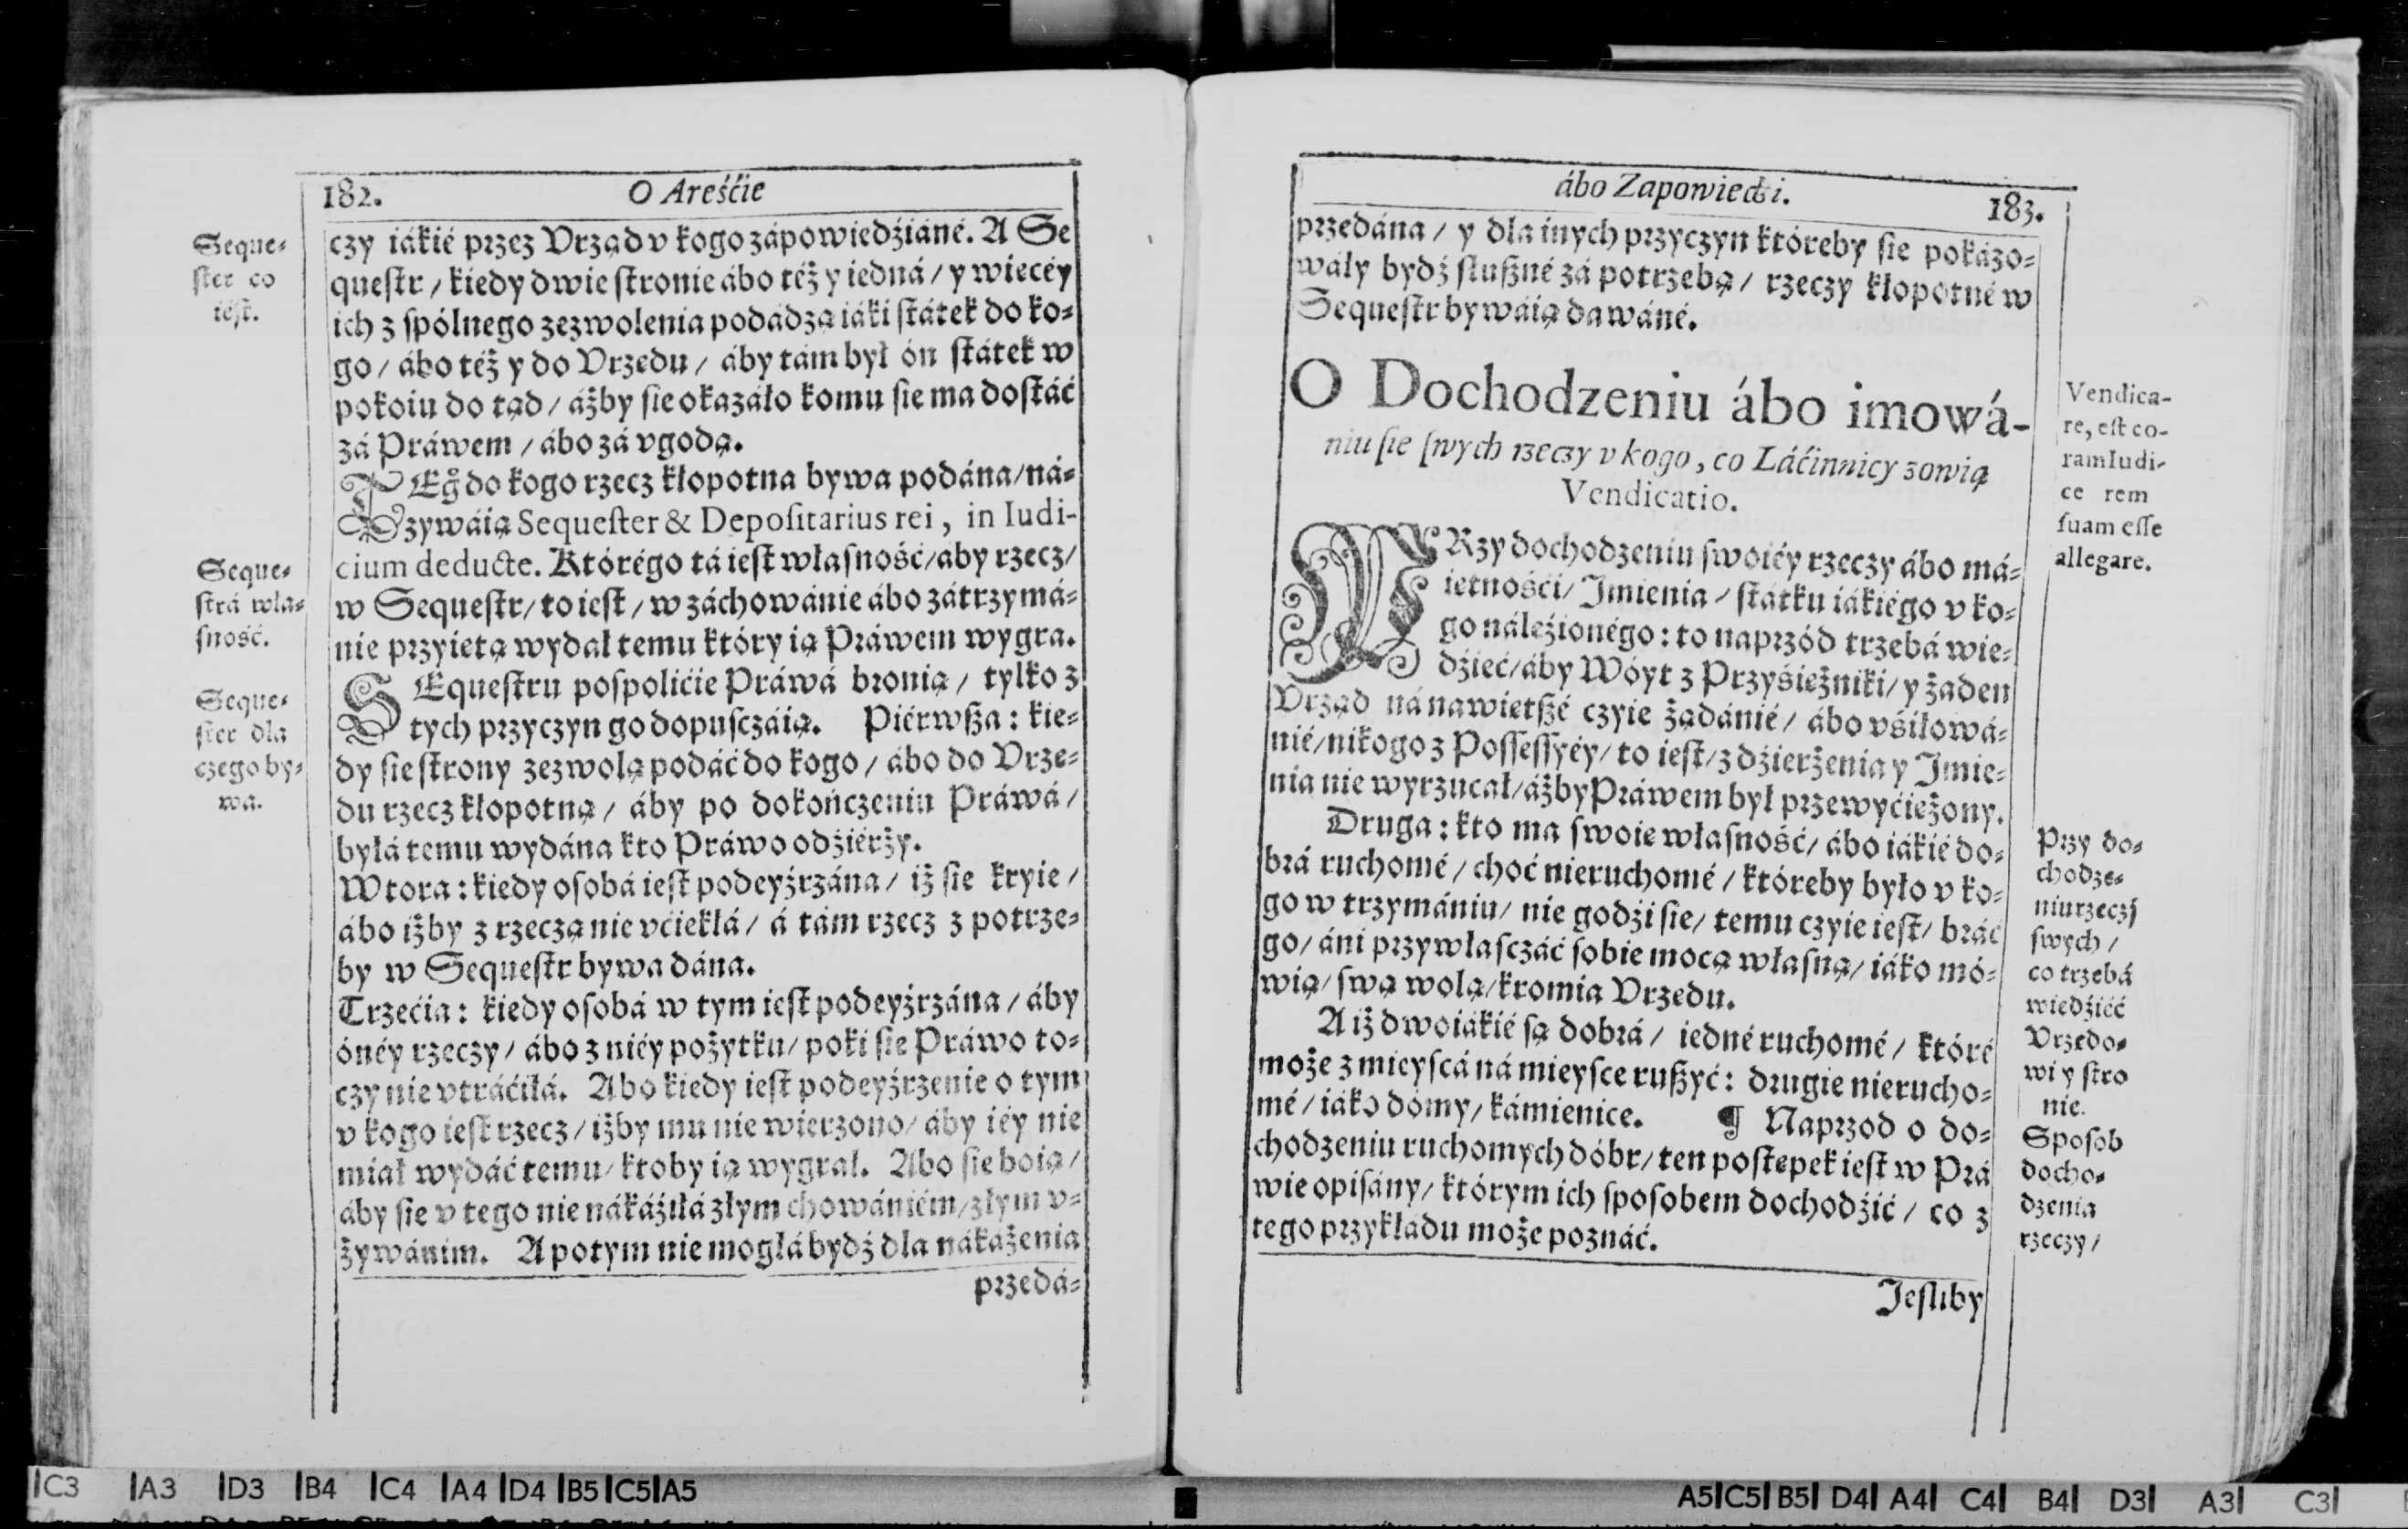 182. O Areśćie
czy iákié przez Vrząd v kogo zápowiedźiáné. A Se
questr / kiedy dwie stronie ábo též y iedná / y wiecéy
ich z spólnego zezwolenia podádzą iáki státek do ko=
go / ábo též y do Vrzedu / áby tám był ón státek w
pokoiu do tąd / áżby sie okazáło komu sie ma dostáć
zá Práwem / ábo zá vgodą.
do kogo rzecz kłopotna bywa podána / ná=
zywáią Sequester & Depositarius rei, in Iudi-
cium deducte. Którégo tá iest własność / aby rzecz /
w Sequestr / to iest / w záchowánie ábo zátrzymá=
nie przyietą wydał temu który ią Práwem wygra.
SEquestru pospolićie Práwá bronią / tylko z
tych przyczyn go dopusczáią. Piérwßa : kie=
dy sie strony zezwolą podáć do kogo / ábo do Vrze=
du rzecz kłopotną / áby po dokończeniu Práwá /
byłá temu wydána kto Práwo odźiérży.
Wtora : kiedy osobá iest podeyźrzána / iż sie kryie /
ábo iżby z rzeczą nie vćiekłá / á tám rzecz z potrze=
by w Sequestr bywa dána.
Trzećia : kiedy osobá w tym iest podeyźrzána / áby
ónéy rzeczy / ábo z niéy pożytku / poki sie Práwo to=
czy nie vtráćiłá. Abo kiedy iest podeyźrzenie o tym
v kogo iest rzecz / iżby mu nie wierzono / áby iéy nie
miał wydáć temu / ktoby ią wygrał. Abo sie boią /
áby sie v tego nie nákáźiłá złym chowániém / złym v=
żywánim. A potym nie mogłá bydź dla nákáżenia
przedá=
Seque=
ster co
iest.
Seque=
strá wła=
sność.
Seque=
ster dla
czego by=
wa.
ábo Zapowiedzi. 183.
przedána / y dla inych przyczyn któreby sie pokázo=
wáły bydź słußné zá potrzebą / rzeczy kłopotné w
Sequestr bywáią dawáné.
O Dochodzeniu ábo imowá-
niu sie swych rzeczy v kogo, co Láćinnicy zowią
Vendicatio.
PRzy dochodzeniu swoiéy rzeczy ábo má=
ietnośći / Imienia / státku iákiégo v ko=
go náleźionégo : to naprzód trzebá wie=
dźieć / áby Wóyt z Przyśieżniki / y żaden
Vrząd ná nawietßé czyie żądánié / ábo vśiłowá=
nié / nikogo z Possessyéy / to iest / z dźierżenia y Imie=
nia nie wyrzucał / áżby Práwem był przewyćieżony.
Druga : kto ma swoie własność / ábo iákié do=
brá ruchomé / choć nieruchomé / któreby było v ko=
go w trzymániu / nie godźi sie / temu czyie iest / bráć
go / áni przywłasczáć sobie mocą własną / iáko mó=
wią / swą wolą / kromia Vrzedu.
A iż dwoiákié są dobrá / iedné ruchomé / któré
może z mieyscá ná mieysce rußyć : drugie nierucho=
mé / iáko domy / kámienice. ¶ Naprzod o do=
chodzeniu ruchomych dóbr / ten postepek iest w Prá
wie opisány / którym ich sposobem dochodźić / co z
tego przykłádu może poznáć.
Jesliby
Vendica-
re, est co-
ram Iudi-
ce rem
suam esse
allegare.
Przy do=
chodze=
niu rzeczy
swych /
co trzebá
wiedźiéć
Vrzedo=
wi y stro
nie.
Sposob
docho=
dzenia
rzeczy /
C3 A3 D3 B4 C4 A4 D4 B5 C5 A5
A5 C5 B5 D4 A4 C4 B4 D3 A3 C3